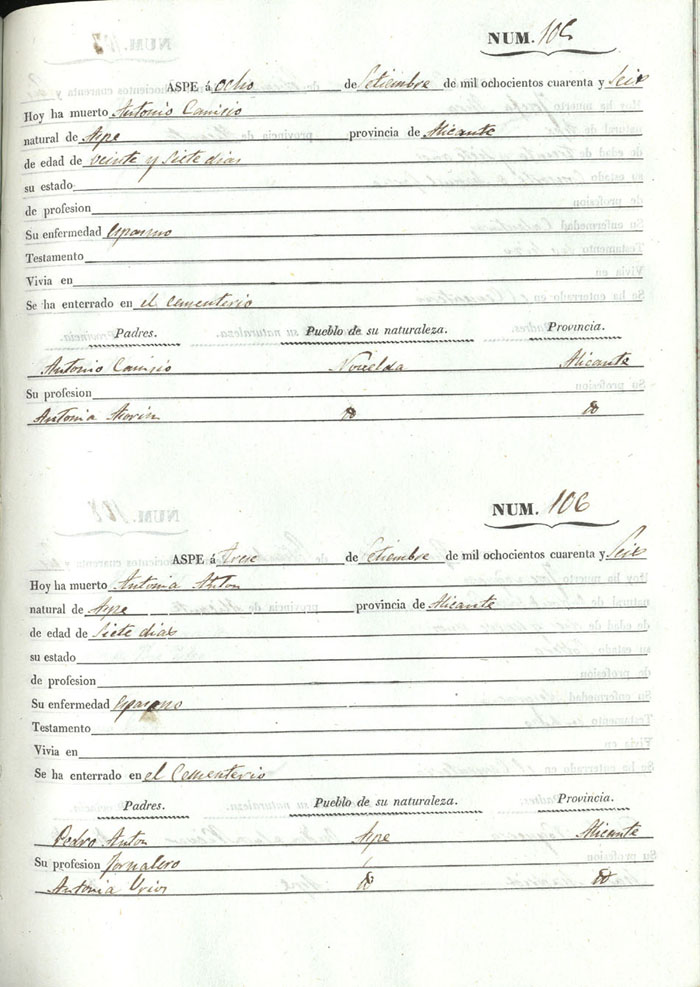 NUM. 105
ASPE á ocho de Setiembre de mil ochocientos cuarenta y Seis
Hoy ha muerto Antonio
natural de Aspe provincia de Alicante
de edad de veinte y siete dias
su estado
de profesion
Su enfermedad Espasmo
Testamento
Vivia en
Se ha enterrado en el cementerio
Padres. Pueblo de su naturaleza. Provincia.
Antonio Novelda Alicante
Su profesion
Antonia
NUM. 106
ASPE á trece de Setiembre de mil ochocientos cuarenta y Seis
Hoy ha muerto Antonia Anton
natural de Aspe provincia de Alicante
de edad de Siete dias
su estado
de profesion
Su enfermedad Espasmo
Testamento
Vivia en
Se ha enterrado en el Cementerio
Padres. Pueblo de su naturaleza. Provincia.
Pedro Anton Aspe Alicante
Su profesion Jornalero
Antonia Urios